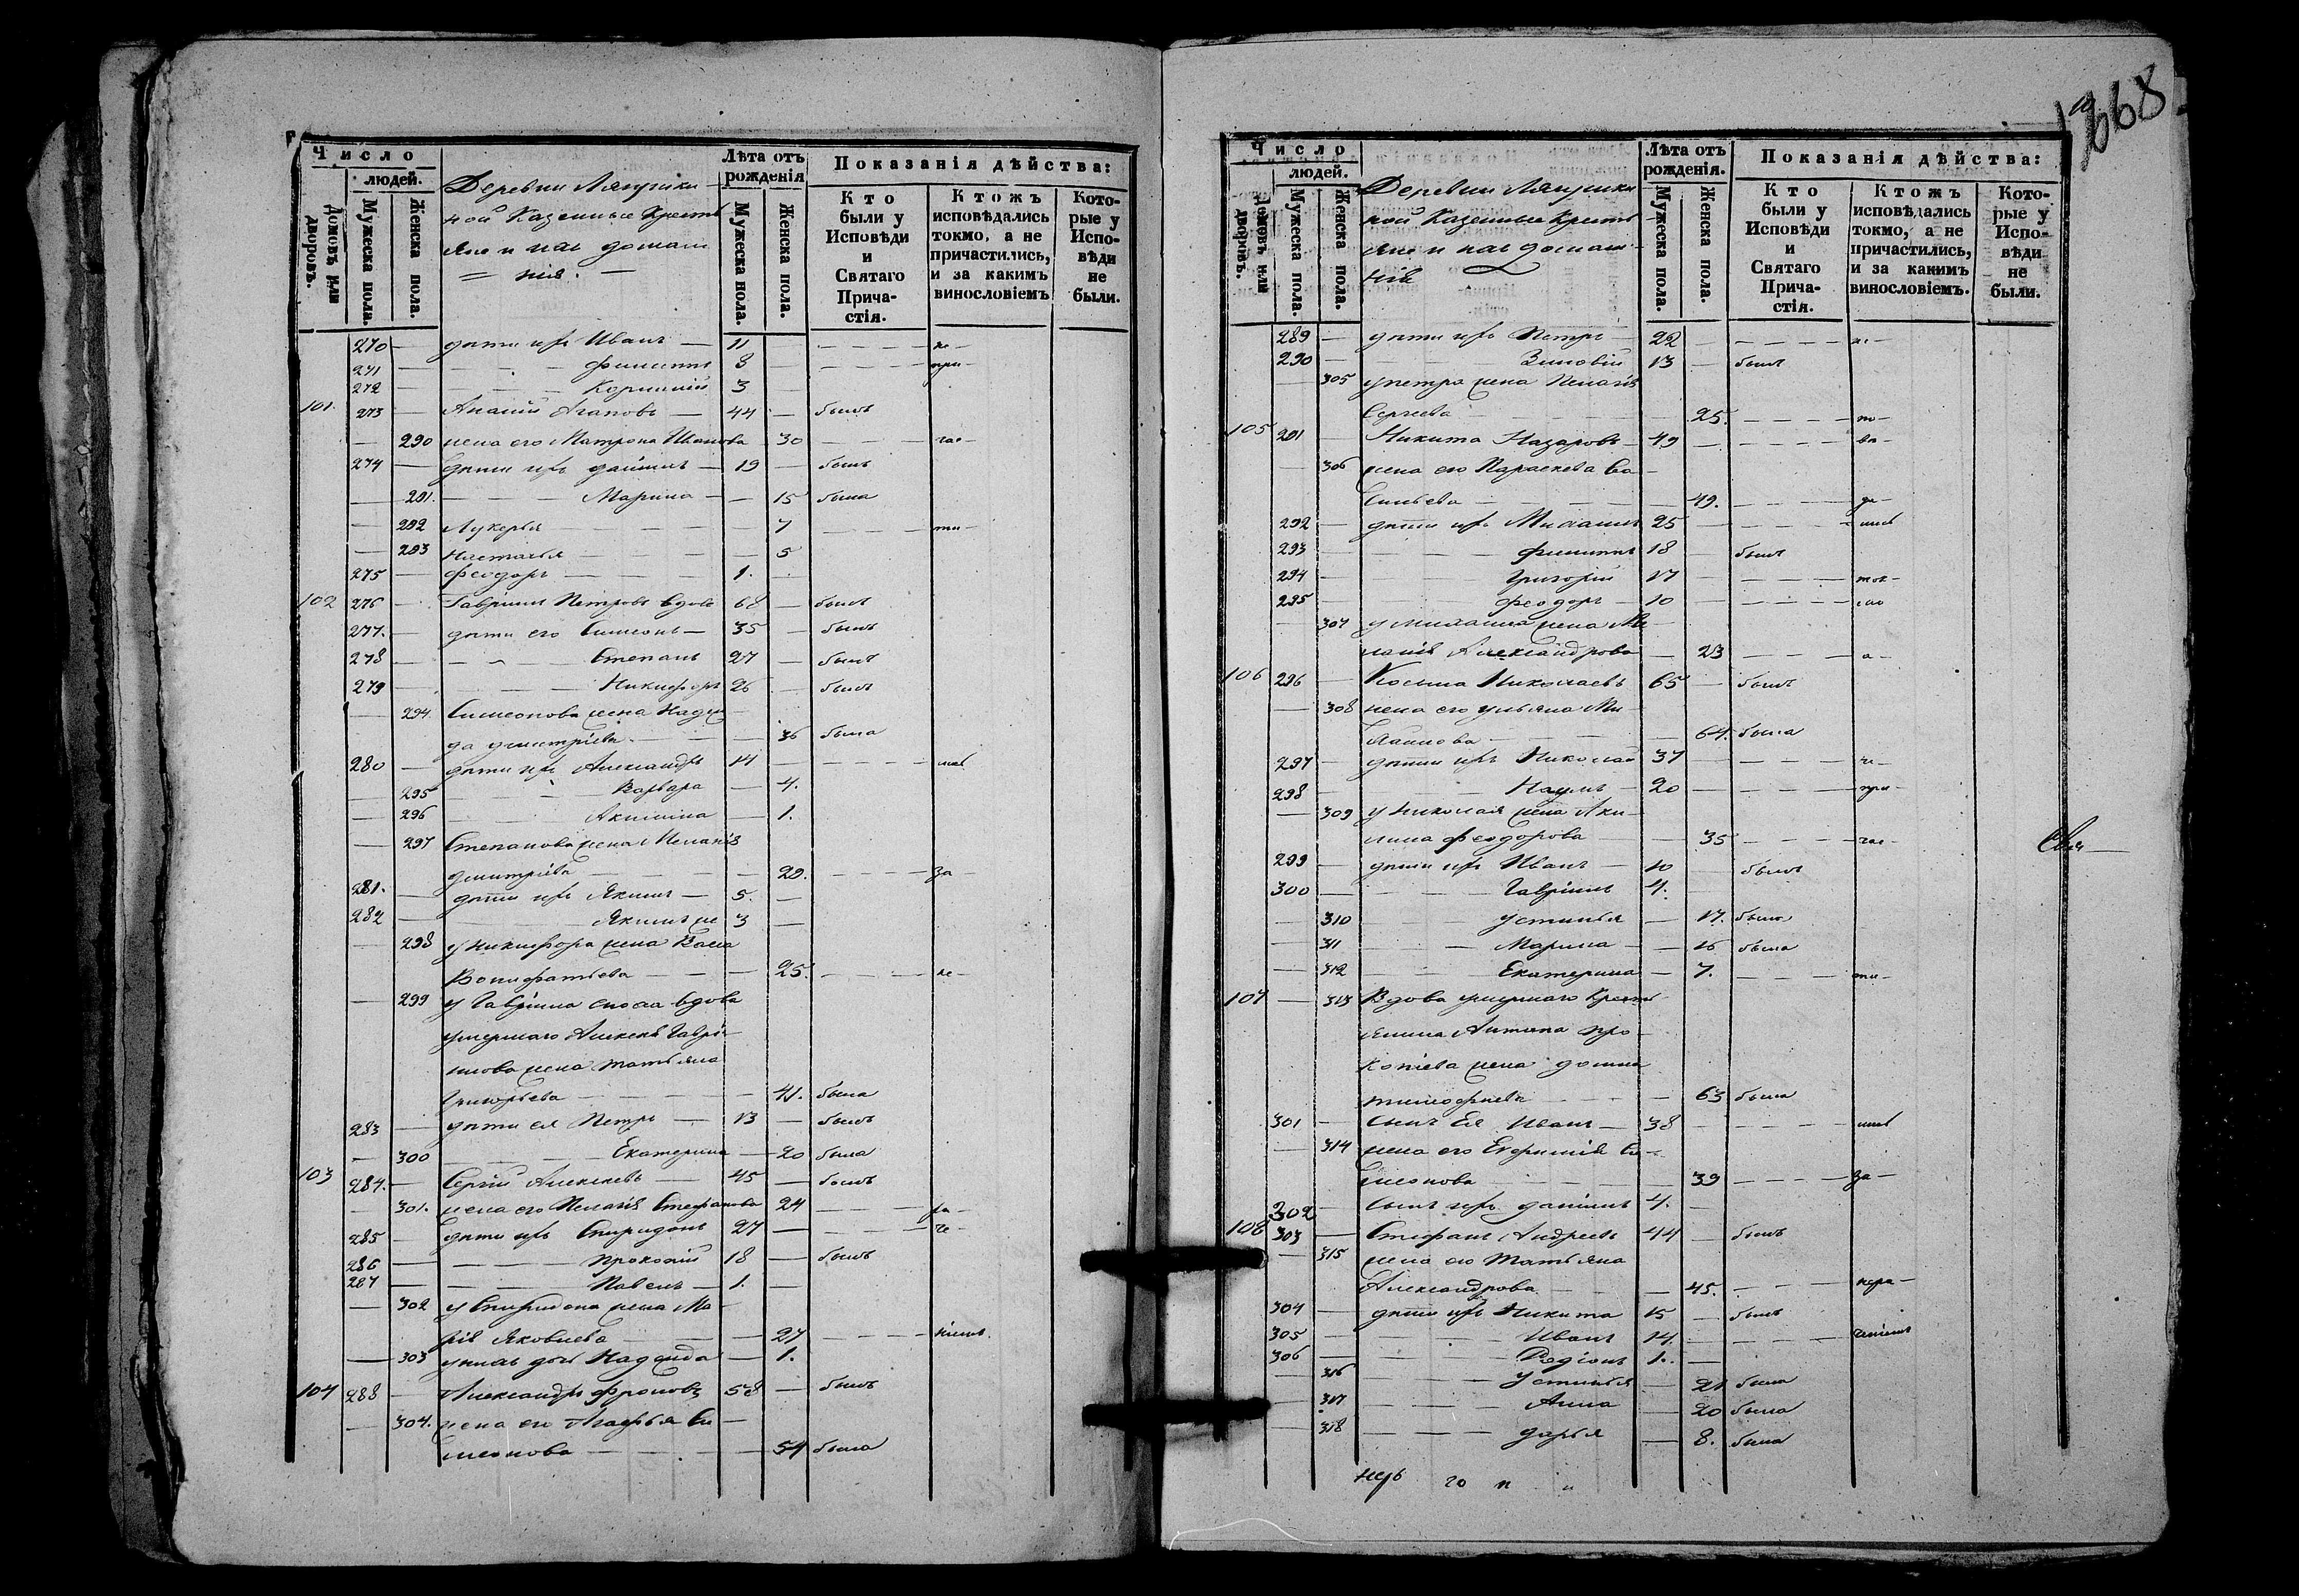 Число
людей.
Домовъ или дворовъ.
Мужеска пола.
Женска пола.
Деревни Лягушки-
ной Казенные Кресть
яне и ихъ домаш
= нія. —
Лѣта отъ рожденія
Мужеска пола.
Женска пола.
Показанія дѣйства:
Кто были у Исповѣди и Святаго Прича-стія.
Ктожъ исповѣдались токмо, а не причастились, и за какимъ винословіемъ
Кото-рые у Испо-вѣди не были.
270 — дѣти ихъ Иванъ — 11 — не —
271 — Филиппъ 8 — при —
272 — Корнилій 3
101. 273 — Ананій Агаповъ — 44 — былъ
— 290 жена его Матрона Иванова — 30 — час —
274 — дѣти ихъ Даніилъ — 19 — былъ
— 291. — Марина — 15 была
— 292 Лукерья — 7 — ти —
— 293 Настасья — 5
275 — Феодоръ — 1.
102 276 — Гавріилъ Петровъ вдовъ 68 — былъ
277. — дѣти его Симеонъ — 35 — былъ
278 — Степанъ 27 — былъ
279 — Никифоръ 26 — былъ
— 294. Симеонова жена Надеж
да Дмитріева — 36 была
280 — дѣти ихъ Александръ 14 —
— 295 — Варвара — 4.
— 296 — Акилина — 1.
— 297 Степанова жена Меланія
Дмитріева — 29. — за —
281. — дѣти ихъ Якимъ — 5. —
282 — Якимъ же 3 —
— 298 у Никифора жена Васса
Вонифатьева — 25. — не —
— 299 у Гавріила сноха вдова
умершаго Алексѣя Гаврі-
илова жена Татьяна
Григорьева — 41. была
283 — дѣти ея Петръ — 13 — былъ
— 300 — Екатерина — 20 была
103 284. — Сергій Алексѣевъ — 45 — былъ
— 301. жена его Пелагія Стефанова 24
285 — дѣти ихъ Спиридонъ 27 —
286 — Прокопій 18 — былъ
287 — Павелъ — 1. —
— 302 у Спиридона жена Ма-
рія Яковлева — 27 — ніемъ.
— 303 у нихъ дочь Надежда — 1.
104 288 — Александръ Фроловъ 58 — былъ
— 304. жена его Агафья Си —
меонова — 54 была
1268
Число
людей.
Домовъ или дворовъ.
Мужеска пола.
Женска пола.
Деревни Лягушки
ной Казенные Кресть
яне и ихъ домаш-
нія
Лѣта отъ рожденія.
Мужеска пола.
Женска пола.
Показанія дѣйства:
Кто были у Исповѣди и Святаго Прича-стія.
Ктожъ исповѣдались токмо, а не причастились, и за какимъ винословіемъ.
Кото-рые у Испо-вѣди не были.
289 — дѣти ихъ Петръ — 22 — не —
290 — Зиновій 13 — былъ
— 305 у Петра жена Пелагія
Сергеева — 25.
105 291 — Никита Назаровъ — 49
— 306 жена его Параскева Ва-
сильева — 49.
292 — дѣти ихъ Михаилъ 25 —
293 — Филиппъ 18 — былъ
294 — Григорій 17 —
295 — Феодоръ — 10 —
— 307 у Михаила жена Ме-
ланія Александрова — 23 — а —
106 296 — Косьма Николаевъ 65 — былъ
— 308 жена его Ульяна Ми
хайлова — 64. была
297 — дѣти ихъ Николай 37 — не —
298 — Наумъ — 20 — при —
— 309 у Николая жена Аки-
лина Феодорова — 35 — час —
299 — дѣти ихъ Иванъ — 10 — былъ
300 — Гавріилъ 4.
— 310 — Устинья — 17. была
— 311 — Марина — 16 была
— 312 — Екатерина — 7. — ти —
107 — 313 Вдова умершаго Кресть-
янина Антипа Про-
копіева жена Домна
Тимофеева — 63 была
301 — сынъ ея Иванъ — 38 —
— 314 жена его Евфимія Си-
меонова — 39 — за —
302 — сынъ ихъ Даніилъ 4. —
108 303 — Стефанъ Андреевъ 44 — былъ
— 315 жена его Татьяна
Александрова — 45. — нера —
304 — дѣти ихъ Никита 15 — былъ
305 — Иванъ 14. — ченіемъ
306 — Родіонъ 1. —
— 316 — Устинья — 21 была
— 317 — Анна — 20 была
— 318 — Дарья — 8. была